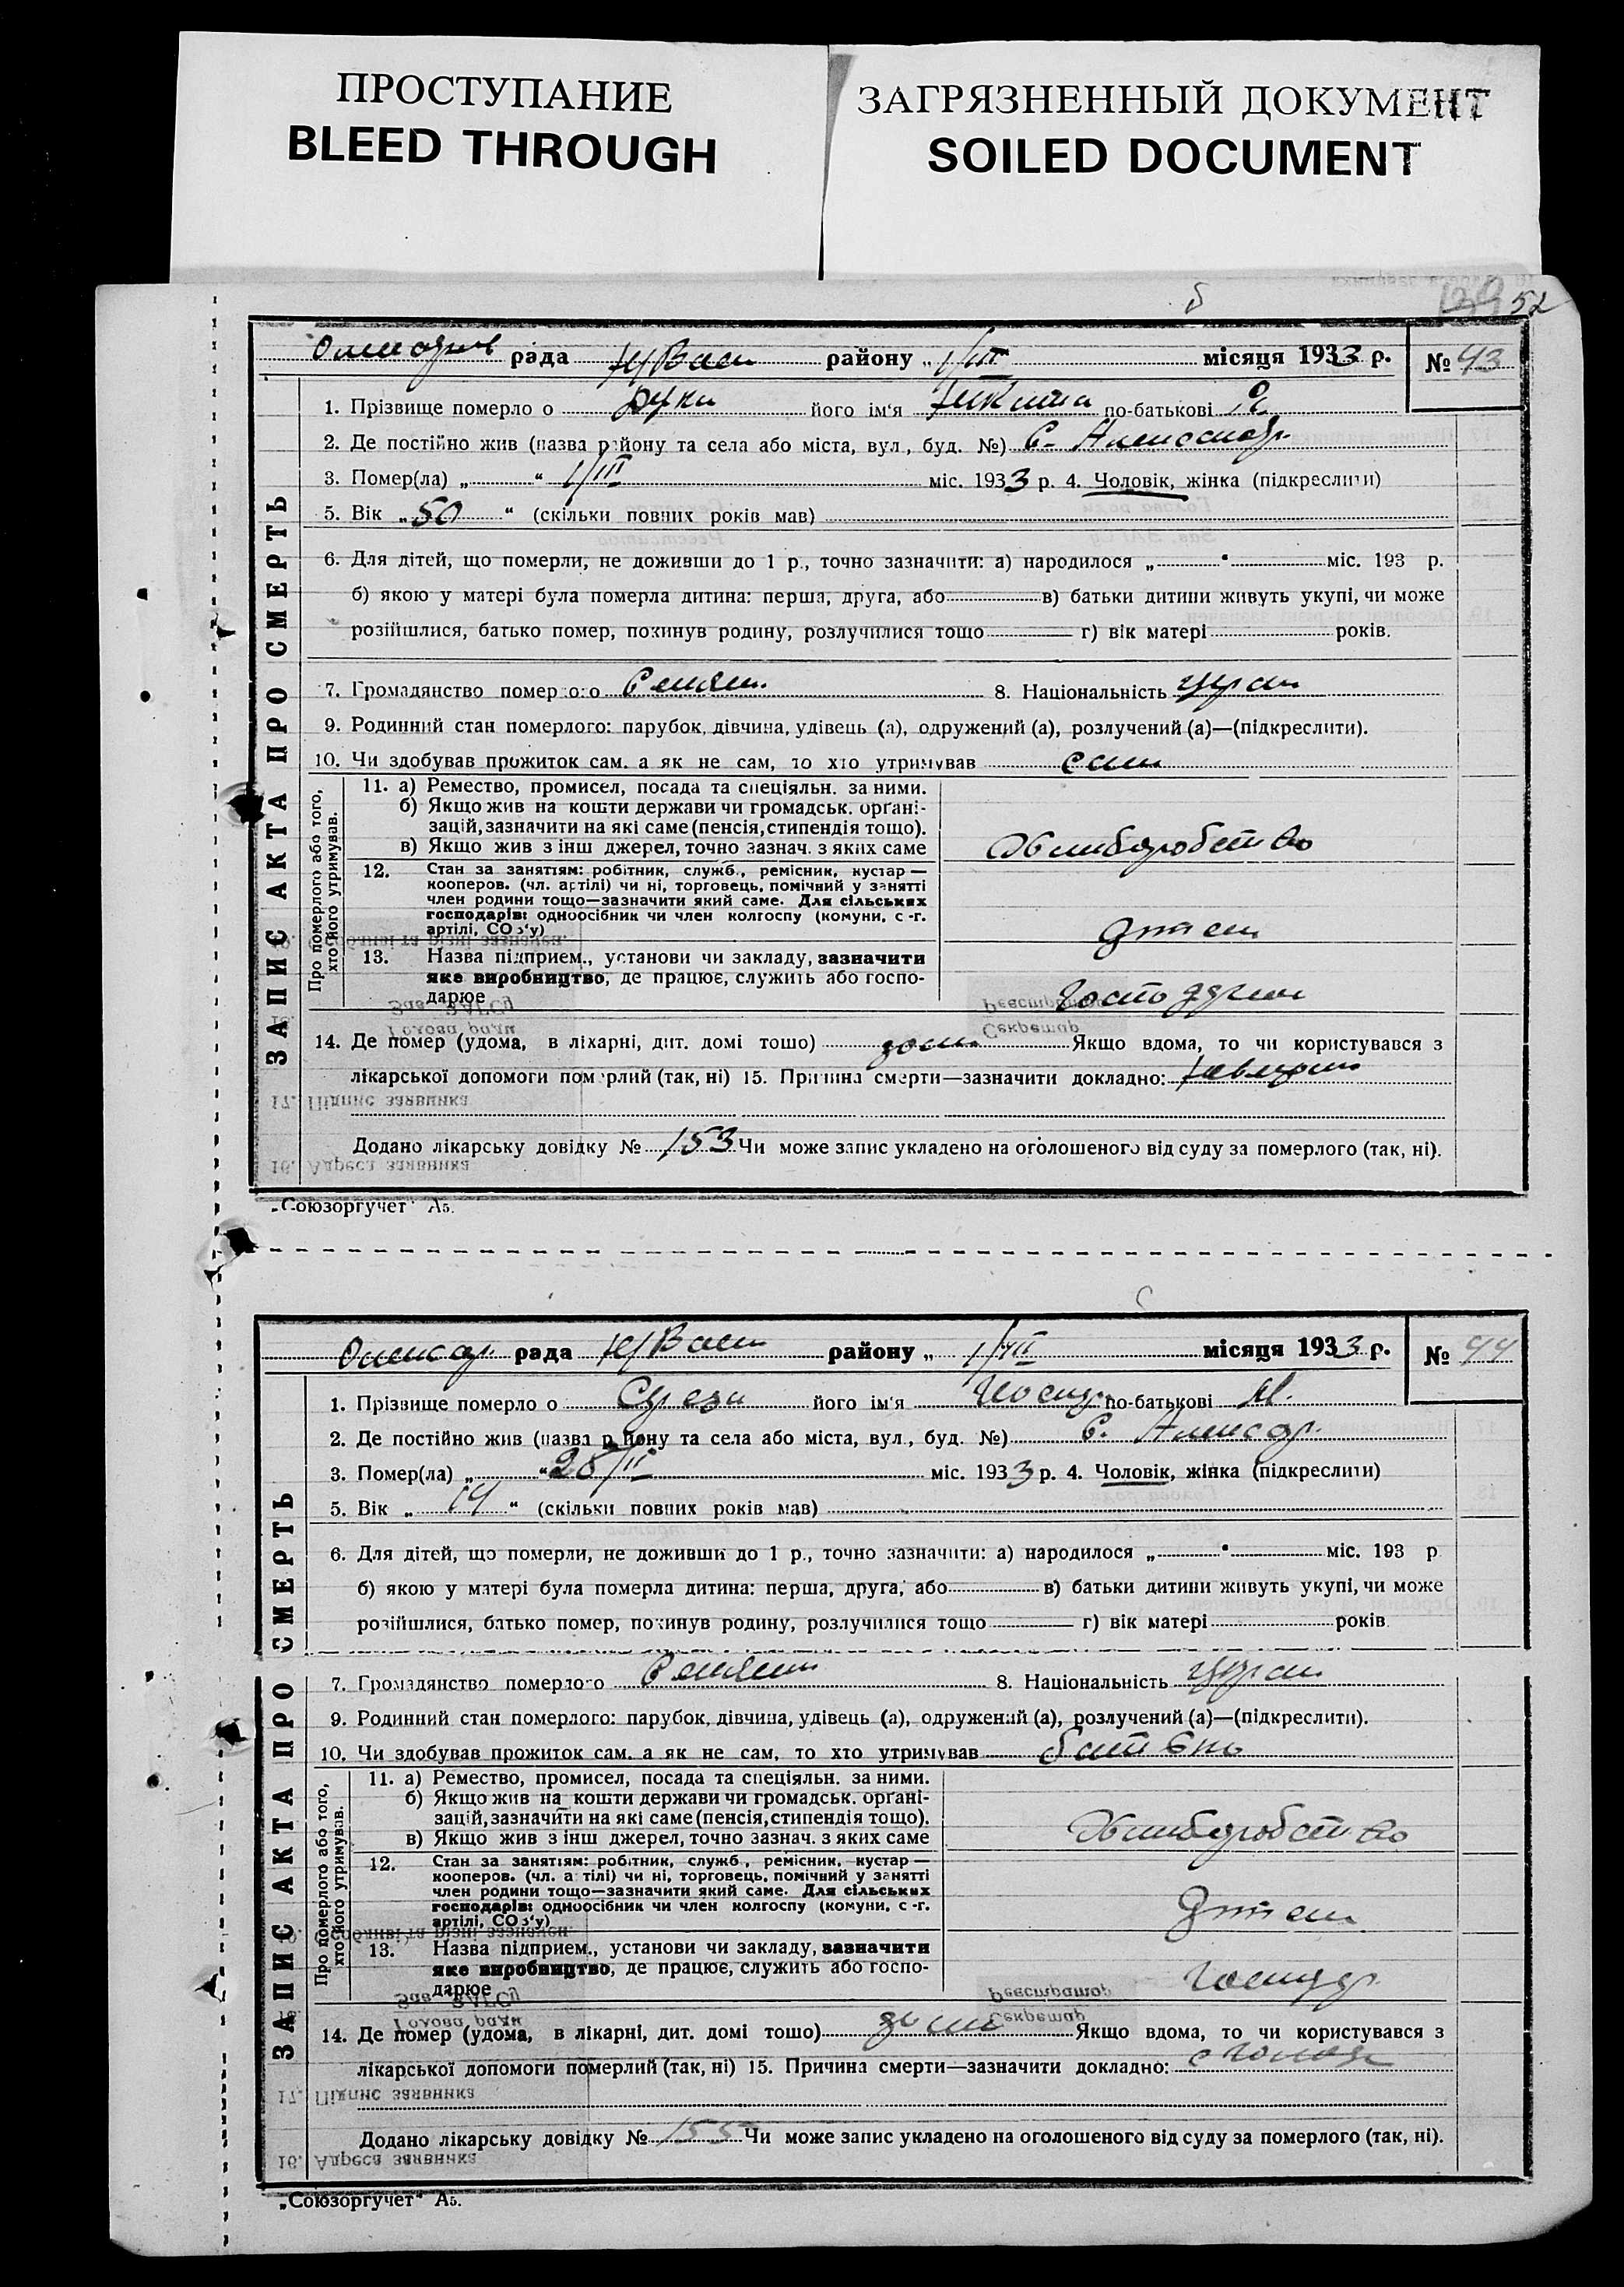 ПРОСТУПАНИЕ
BLEED THROUGH
ЗАГРЯЗНЕННЫЙ ДОКУМЕНТ
SOILED DOCUMENT
52
рада Н/Васи району „ 1/III місяця 1933 р. № 43
1. Прізвище померло о його ім'я по-батькові
2. Де постійно жив (назва району та села або міста, вул., буд. №) С.
3. Помер(ла) „ “ 1/III міс. 1933 р. 4. Чоловік, жінка (підкреслити)
5. Вік „ 50 “ (скільки повних років мав)
6. Для дітей, що померли, не доживши до 1 р., точно зазначити: а) народилося „ “ міс. 193 р.
б) якою у матері була померла дитина: перша, друга, або в) батьки дитини живуть укупі, чи може
розійшлися, батько помер, покинув родину, розлучилися тощо г) вік матері років.
7. Громадянство померлого 8. Національність
9. Родинний стан померлого: парубок, дівчина, удівець (а), одружений (а), розлучений (а)—(підкреслити).
10. Чи здобував прожиток сам, а як не сам, то хто утримував сам
ЗАПИС АКТА ПРО СМЕРТЬ
Про померлого або того, хто його утримував.
11. а) Ремество, промисел, посада та спеціяльн. за ними.
б) Якщо жив на кошти держави чи громадськ. органі-
зацій, зазначити на які саме (пенсія, стипендія тощо).
в) Якщо жив з інш джерел, точно зазнач. з яких саме Хлиборобство
12. Стан за заняттям: робітник, служб., ремісник, кустар—
кооперов. (чл. артілі) чи ні, торговець, помічний у занятті
член родини тощо—зазначити який саме. Для сільських
господарів: одноосібник чи член колгоспу (комуни, с.-г.
артілі, СОз'у)
13. Назва підприєм., установи чи закладу, зазначити
яке виробництво, де працює, служить або госпо-
дарює
14. Де помер (удома, в лікарні, дит. домі тощо) дома Якщо вдома, то чи користувався з
лікарської допомоги померлий (так, ні) 15. Причина смерти—зазначити докладно:
17. Підпис заявника
Додано лікарську довідку № 153 Чи може запис укладено на оголошеного від суду за померлого (так, ні).
16. Адреса заявника
„Союзоргучет“ А5.
рада Н/Васи району „ 1/III місяця 1933 р. № 44
1. Прізвище померло о його ім'я по-батькові М.
2. Де постійно жив (назва району та села або міста, вул., буд. №) С.
3. Помер(ла) „ “ 28/II міс. 1933 р. 4. Чоловік, жінка (підкреслити)
5. Вік „ 14 “ (скільки повних років мав)
6. Для дітей, що померли, не доживши до 1 р., точно зазначити: а) народилося „ “ міс. 193 р
б) якою у матері була померла дитина: перша, друга, або в) батьки дитини живуть укупі, чи може
розійшлися, батько помер, покинув родину, розлучилися тощо г) вік матері років.
7. Громадянство померлого 8. Національність
9. Родинний стан померлого: парубок, дівчина, удівець (а), одружений (а), розлучений (а)—(підкреслити).
10. Чи здобував прожиток сам, а як не сам, то хто утримував батько
ЗАПИС АКТА ПРО СМЕРТЬ
Про померлого або того, хто його утримував.
11. а) Ремество, промисел, посада та спеціяльн. за ними.
б) Якщо жив на кошти держави чи громадськ. органі-
зацій, зазначити на які саме (пенсія, стипендія тощо).
в) Якщо жив з інш джерел, точно зазнач. з яких саме Хлиборобство
12. Стан за заняттям: робітник, служб., ремісник, кустар—
кооперов. (чл. артілі) чи ні, торговець, помічний у занятті
член родини тощо—зазначити який саме. Для сільських
господарів: одноосібник чи член колгоспу (комуни, с.-г.
артілі, СОз'у)
13. Назва підприєм., установи чи закладу, зазначити
яке виробництво, де працює, служить або госпо-
дарює
14. Де помер (удома, в лікарні, дит. домі тощо) дома Якщо вдома, то чи користувався з
лікарської допомоги померлий (так, ні) 15. Причина смерти—зазначити докладно:
17. Підпис заявника
Додано лікарську довідку № 155 Чи може запис укладено на оголошеного від суду за померлого (так, ні).
16. Адреса заявника
„Союзоргучет“ А5.